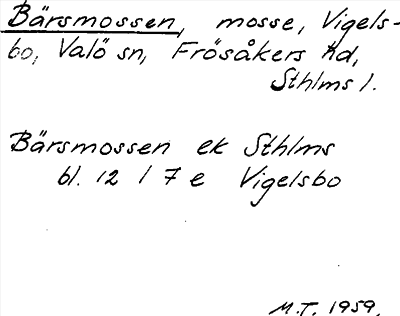 Bärsmossen, mosse, Vigels-
bo, Valö sn, Frösåkers hd,
Sthlms l.
Bärsmossen ek Sthlms
bl. 12 I 7 e Vigelsbo
M.T. 1959.